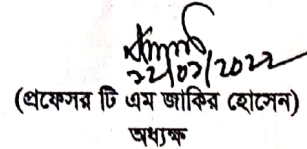 22/07/2022
(প্রফেসর টি এম জাকির হোসেন)
অধ্যক্ষ